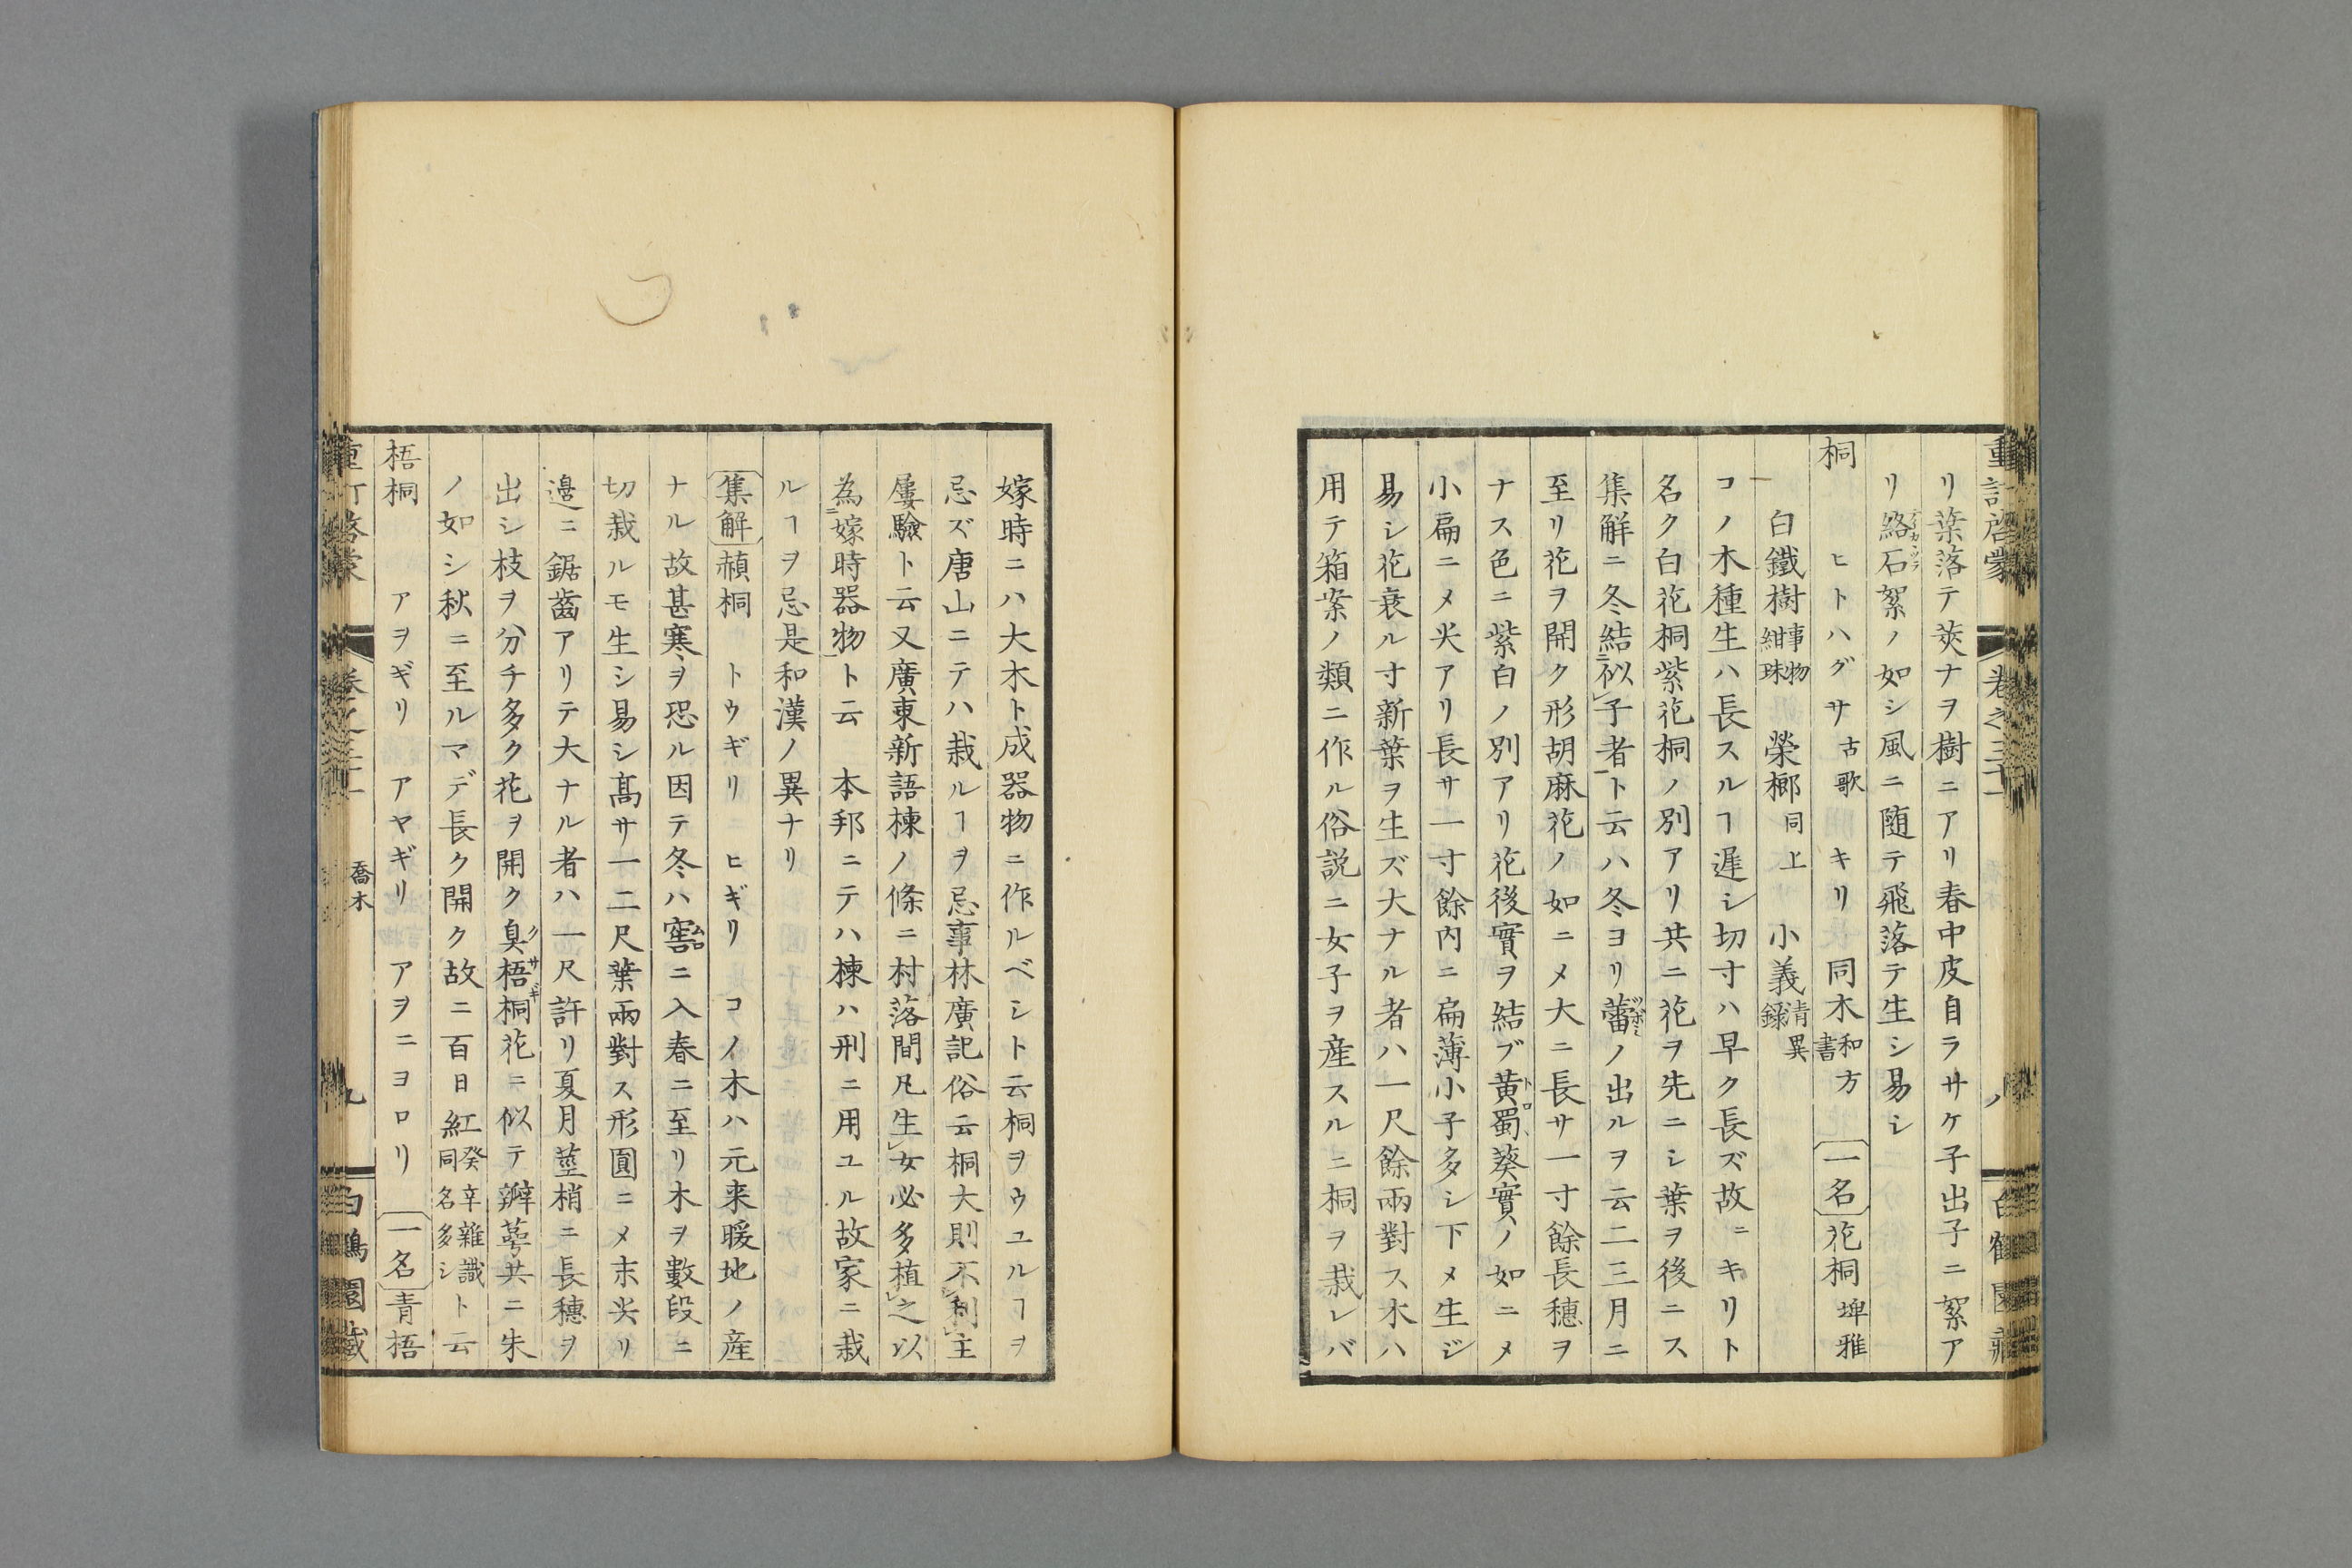 リ葉落テ莢ナヲ樹ニアリ春中皮自ラサケ子出子ニ絮ア
リ絡石絮ノ如シ風ニ随テ飛落テ生シ易シ
桐 ヒトハグサ古歌 キリ 同木和方書 一名 花桐埤雅
白鐵樹事物紺珠 榮桹同上 小義清異錄
コノ木種生ハ長スルヿ遲シ切寸ハ早ク長ズ故ニキリト
名ク白花桐紫花桐ノ別アリ共ニ花ヲ先ニシ葉ヲ後ニス
集解ニ冬結似子者ト云ハ冬ヨリ蕾ツボミノ出ルヲ云二三月ニ
至リ花ヲ開ク形胡麻花ノ如ニメ大ニ長サ一寸餘長穗ヲ
ナス色ニ紫白ノ別アリ花後實ヲ結ブ黄蜀葵トロヽ實ノ如ニメ
小扁ニメ尖アリ長サ一寸餘内ニ扁薄小子多シ下メ生ジ
易シ花衰ル寸新葉ヲ生ズ大ナル者ハ一尺餘兩對ス木ハ
用テ箱案ノ類ニ作ル俗説ニ女子ヲ産スルニ桐ヲ栽レバ
嫁時ニハ大木ト成器物ニ作ルベシト云桐ヲウユルヿヲ
忌ズ唐山ニテハ栽ルヿヲ忌事林廣記俗云桐大則不利主
屢驗ト云又廣東新語棟ノ條ニ村落間凡生女必多植之以
為嫁時器物ト云 本邦ニテハ楝ハ刑ニ用ユル故家ニ栽
ルヿヲ忌是和漢ノ異ナリ
集解 赬桐 トウギリ ヒギリ コノ木ハ元来暖地ノ産
ナル故甚寒ヲ恐ル因テ冬ハ窖ムロニ入春ニ至リ木ヲ數段ニ
切栽ルモ生シ易シ髙サ一二尺葉兩對ス形圓ニメ末尖リ
邉ニ鋸齒アリテ大ナル者ハ一尺許リ夏月莖梢ニ長穗ヲ
出シ枝ヲ分チ多ク花ヲ開ク臭梧桐クサギ花ニ似テ瓣萼共ニ朱
ノ如シ秋ニ至ルマデ長ク開ク故ニ百日紅癸辛雜識同名多シト云
梧桐 アヲギリ アヤギリ アヲニヨロリ 一名 青梧
重訂啓蒙 卷之三十一 八 白鶴園藏
喬木 九